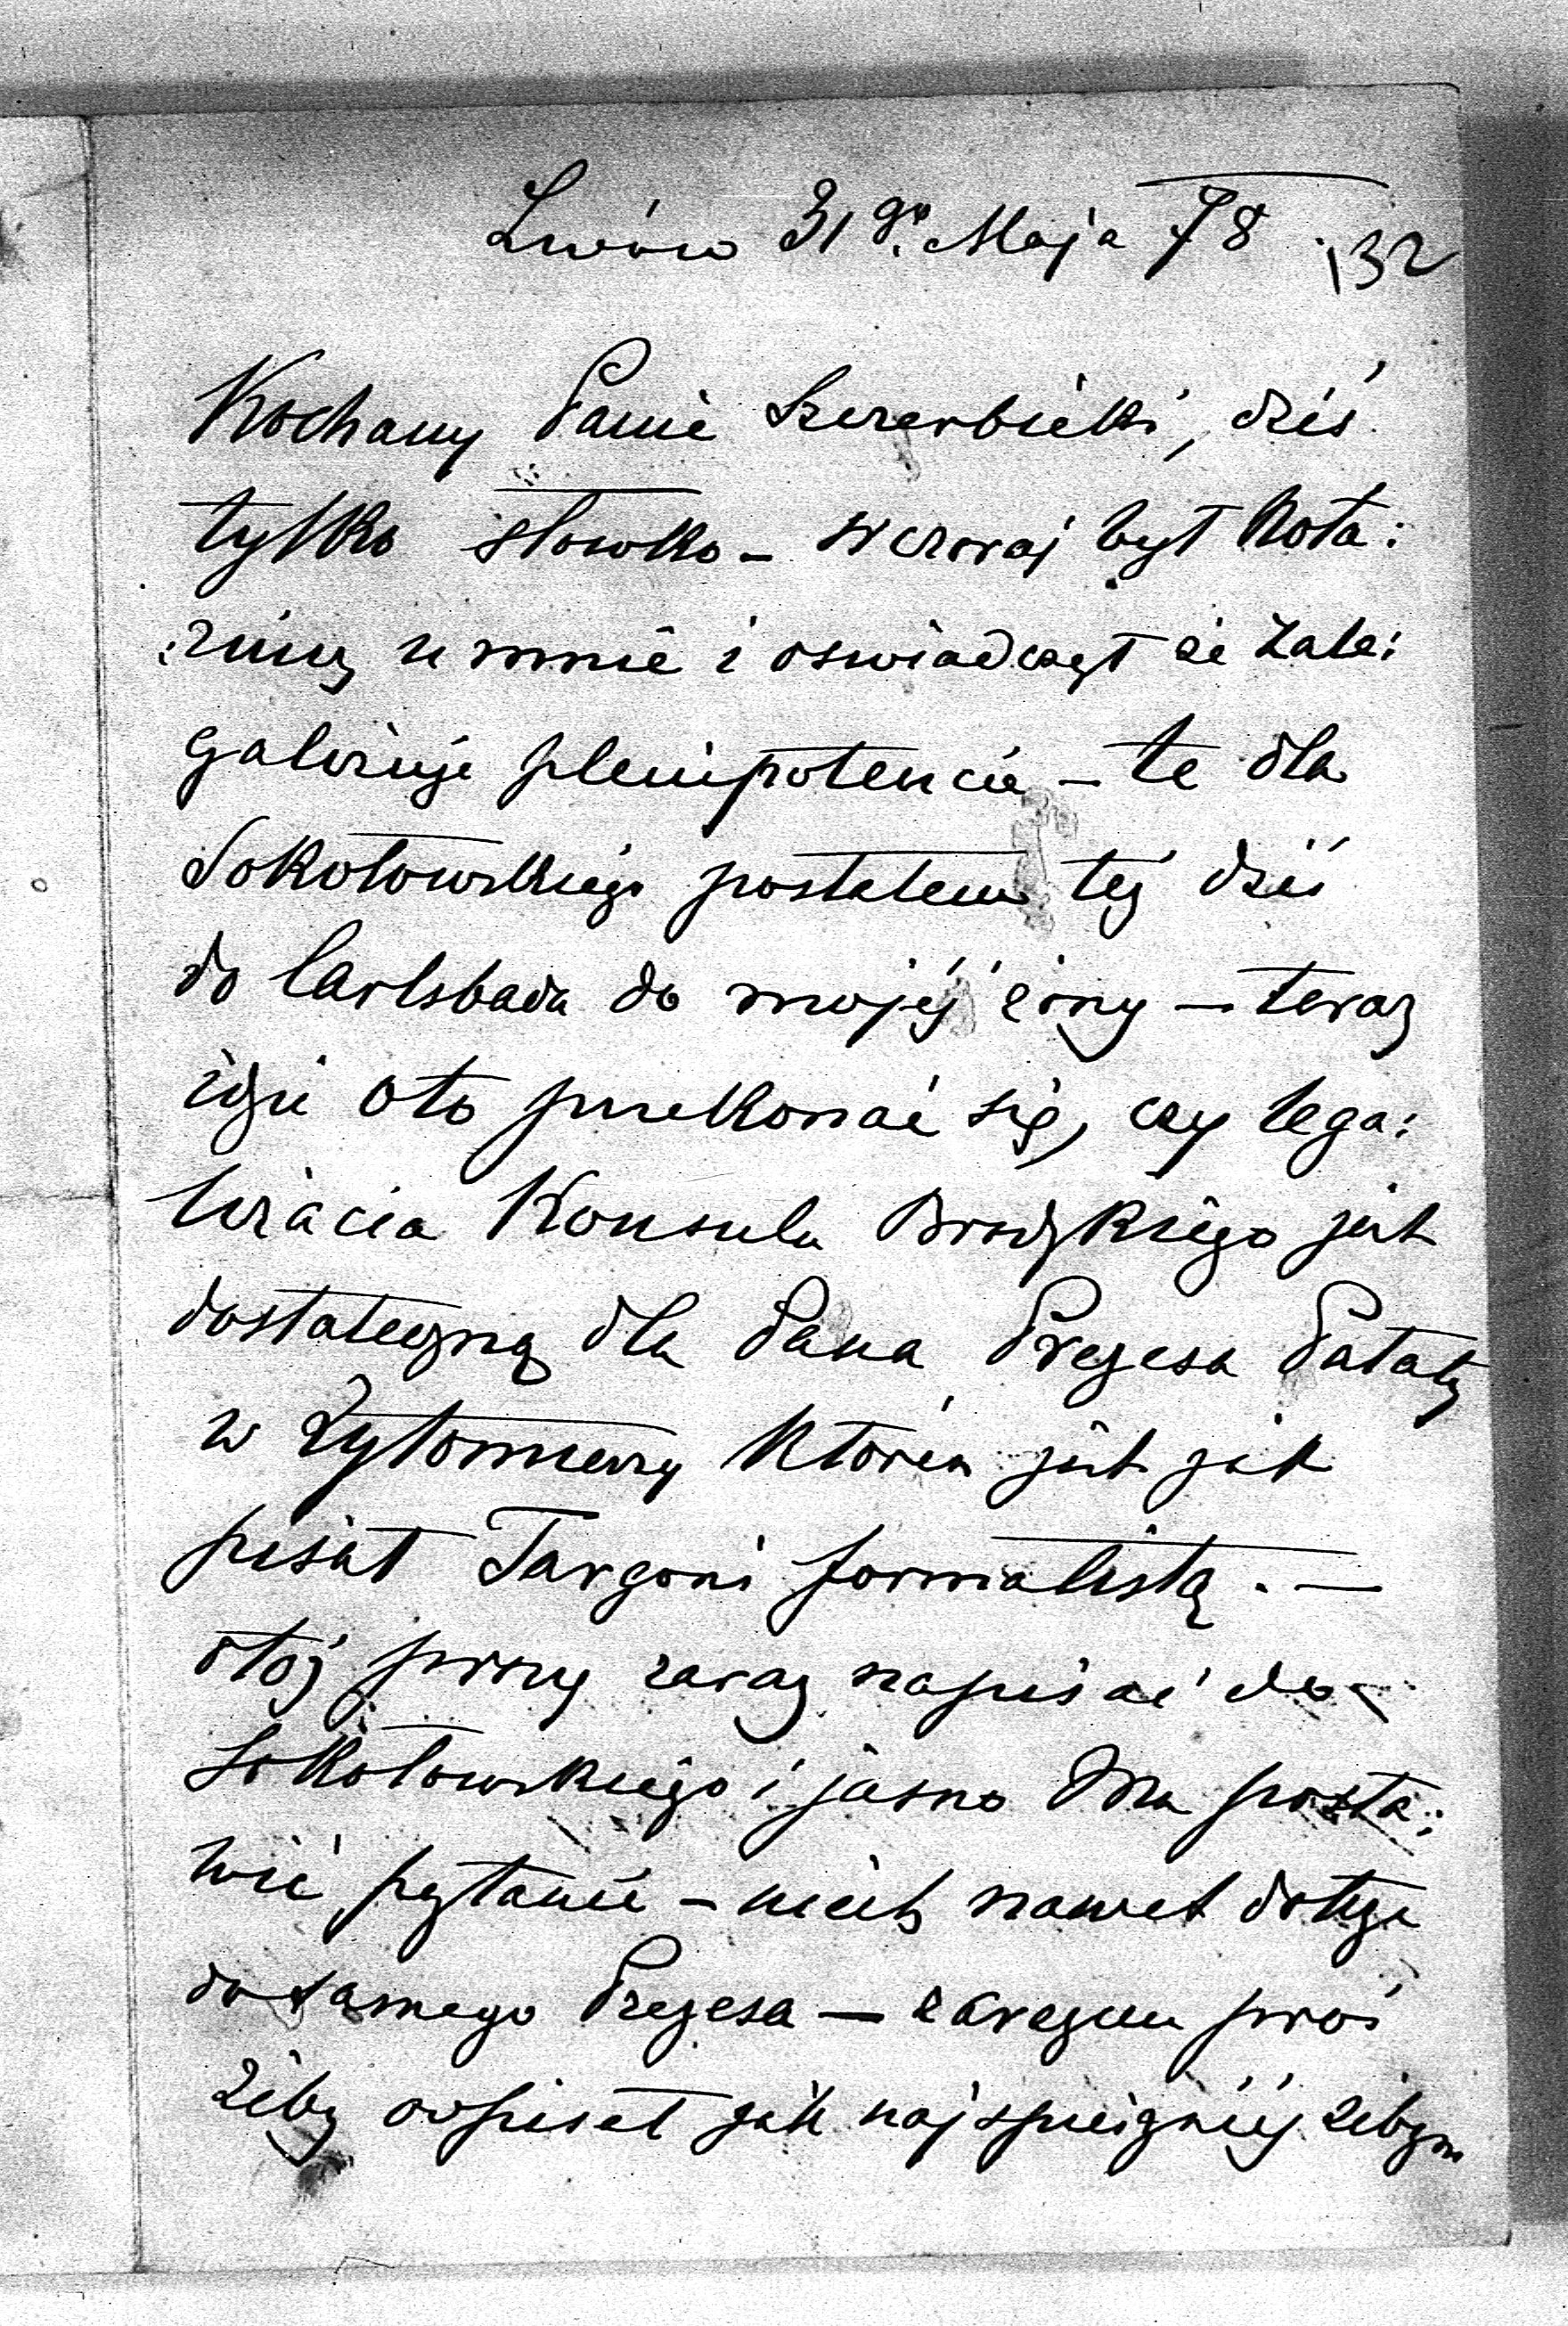 Lwów 31go Maja 78 132
Kochany Panie Szczerbicki, dziś
tylko słowko – wczoraj był Kota:
:rnicz u mnie i oświadczył że zale:
galizuje plenipotencie – te dla
Sokołowskiego posłałem tej dziś
do Carlsbada do mojéj żony – teraz
idzie oto przekonać się, czy lega:
lizácia Konsula Brodzkiego jest
dostateczną dla Pana Prezesa Pałaty
w Żytomierzu który jest jak
pisał Targoni formalistą. –
otóż proszę zaraz napisać do
Sokołowskiego i jasno Mu posta:
wić pytanie – niech nawet dotrze
do samego Prezesa – zarazem proś
żeby odpisał jak najspieszniéj żebym